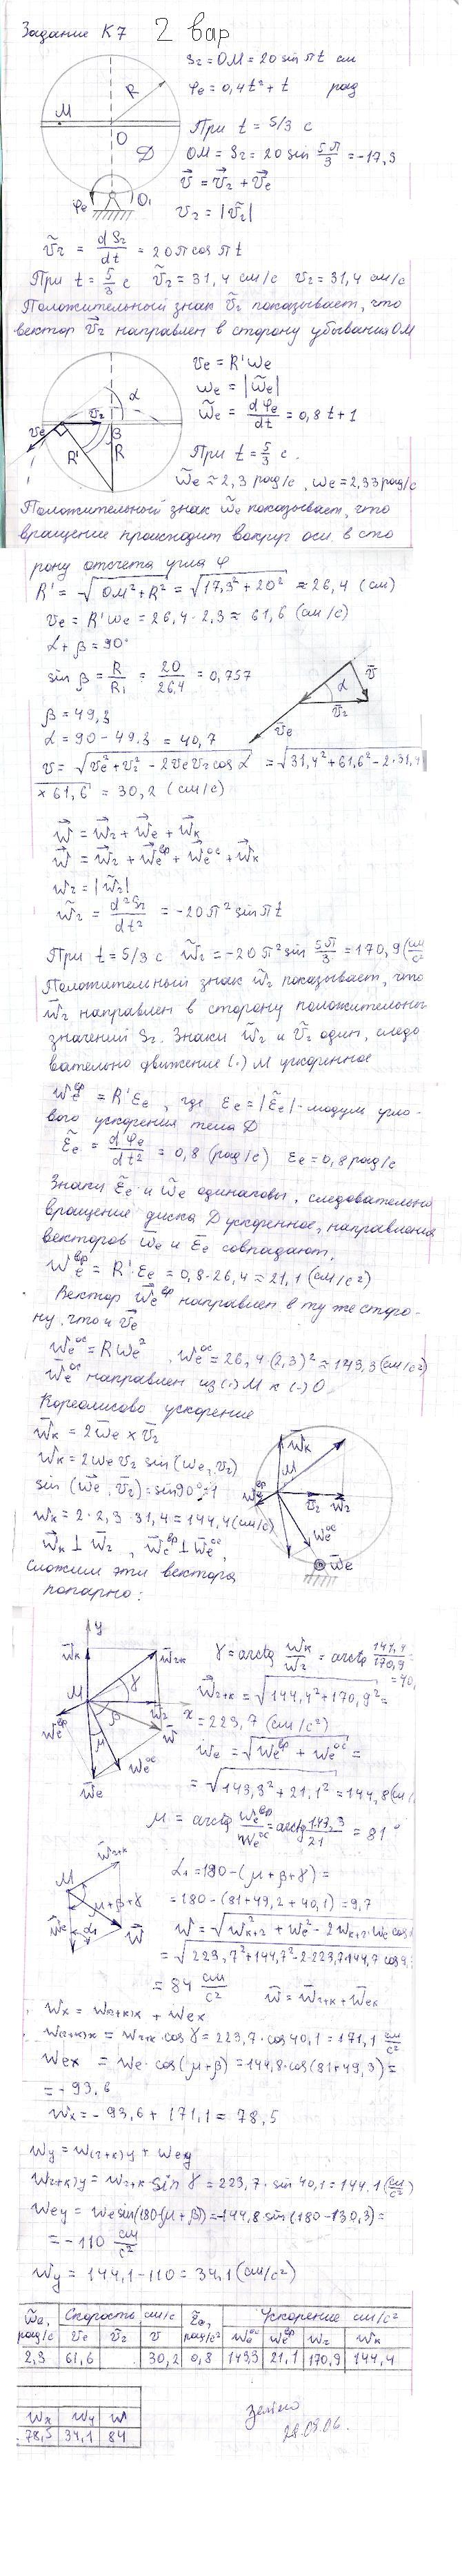 Задание К7 2 вар
S₂ = OM = 20 sin πt см
φe = 0,4t² + t рад
М R О D
При t = 5/3 с
OM = S₂ = 20 sin 5π/3 = -17,3
v̄ = v̄₂ + v̄e
v₂ = |ṽ₂|
φe O₁
ṽ₂ = dS₂/dt = 20π cos πt
При t = 5/3 с ṽ₂ = 31,4 см/с v₂ = 31,4 см/с
Положительный знак ṽ₂ показывает, что
вектор v̄₂ направлен в сторону убывания ОМ
ve = R'ωe
ωe = |ω̃e|
ω̃e = dφe/dt = 0,8t + 1
α v₂ β ve R' R
При t = 5/3 с.
ω̃e ≈ 2,3 рад/с, ωe = 2,33 рад/с
Положительный знак ω̃e показывает, что
вращение происходит вокруг оси в сто
рону отсчета угла φ
R' = √OM² + R² = √17,3² + 20² ≈ 26,4 (см)
ve = R'ωe = 26,4 · 2,3 ≈ 61,6 (см/с)
α + β = 90°
sin β = R/R₁ = 20/26,4 = 0,757
β = 49,3
α = 90 - 49.3 = 40,7
α v̄ v̄₂ v̄e
v = √ve² + v₂² - 2vev₂cos α = √31,4² + 61,6² - 2·31,4
× 61,6 = 30,2 (см/с)
w̄ = w̄₂ + w̄e + w̄к
w̄ = w̄₂ + w̄e^вр + w̄e^ос + w̄к
w₂ = |w̃₂|
w̃₂ = d²S₂/dt² = -20π² sin πt
При t = 5/3 с w̃₂ = -20π² sin 5π/3 = 170,9 (см/с²
Положительный знак w̃₂ показывает, что
w̄₂ направлен в сторону положительны
значений S₂. Знаки w̃₂ и ṽ₂ один, следо
вательно движение (·) М ускоренное
we^вр = R'εe, где εe = |ε̃e| - модуль угло-
вого ускорения тела D
ε̃e = dφe/dt² = 0,8 (рад/с) εe = 0,8 рад/с
Знаки ε̃e и ω̃e одинаковы, следовательно
вращение диска D ускоренное, направления
векторов ω̄e и ε̄e совпадают,
we^вр = R'εe = 0,8 · 26,4 ≈ 21,1 (см/с²)
Вектор w̄e^вр направлен в ту же сторо-
ну, что и v̄e
we^ос = Rωe², we^ос = 26,4 (2,3)² ≈ 143,3 (см/с²)
w̄e^ос направлен из (·) М к (·) О
Кореолисово ускорение
w̄к = 2ω̄e × v̄₂
wк = 2ωe v₂ sin(ωe, v₂)
sin (ω̄e, v̄₂) = sin90° = 1
wк = 2 · 2,3 · 31,4 = 144,4 (см/с)
w̄к ⊥ w̄₂, w̄e^вр ⊥ w̄e^ос,
w̄к М we^вр v̄₂ w̄₂ we^ос ω̄e
Сложим эти вектора
попарно:
y w̄к w̄₂к М γ w̄₂ x β μ w̄ w̄e^вр we^ос w̄e
γ = arctg wк/w₂ = arctg 144,4/170,9 = 40,
w̄₂+к = √144,4² + 170,9² =
= 223,7 (см/с²)
we = √we^вр + we^ос =
= √143,3² + 21,1² = 144,8 (см/
μ = arctg we^вр/we^ос = arctg 143,3/21 = 81°
М w₂+к μ+β+γ w̄e α₁ w̄
α₁ = 180 - (μ + β + γ) =
= 180 - (81 + 49,2 + 40,1) = 9,7
w = √wк+₂² + we² - 2wк+₂·we cos
= √223,7² + 144,7² - 2·223,7·144,7 cos9,
= 84 см/с² w̄ = w̄₂+к + w̄ex
wx = w(₂+к)x + wex
w(₂+к)x = w₂+к · cos γ = 223,7 · cos 40,1 = 171,1 см/с²
wex = we · cos(μ+β) = 144,8 · cos(81+49,3) =
= - 93,6
wx = - 93,6 + 171,1 = 78,5
wy = w(₂+к)y + wey
w(₂+к)y = w₂+к · sin γ = 223,7 · sin 40,1 = 144,1 (см/с²)
wey = we sin(180-(μ+β)) = -144,8 sin(180-130,3) =
= - 110 см/с²
wy = 144,1 - 110 = 34,1 (см/с²)
ω̃e, рад/с Скорость см/с ε̃e, рад/с² Ускорение см/с²
ve ṽ₂ v we^ос we^вр w₂ wк
2,3 61,6 30,2 0,8 143,3 21,1 170,9 144,4
wx wy w
78,5 34,1 84
зачтено